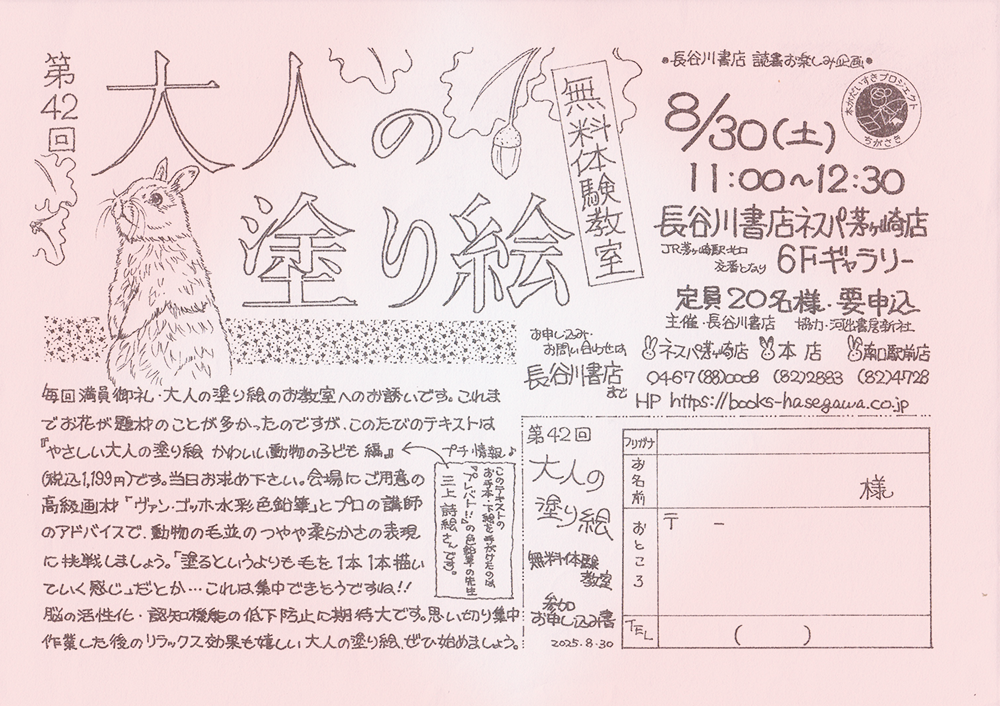 第42回
大人の
塗り絵
無料体験教室
●長谷川書店 読書お楽しみ企画●
本がだいすきプロジェクト
ちがさき
8/30(土)
11:00〜12:30
長谷川書店ネスパ茅ヶ崎店
JR茅ヶ崎駅北口
交番となり
6Fギャラリー
定員20名様・要申込
主催・長谷川書店 協力・河出書房新社
お申し込み・
お問い合わせは
長谷川書店
まで
ネスパ茅ヶ崎店 本店 南口駅前店
0467(88)0008 (82)2883 (82)4728
HP https://books-hasegawa.co.jp
毎回満員御礼・大人の塗り絵のお教室へのお誘いです。これま
でお花が題材のことが多かったのですが、このたびのテキストは
『やさしい大人の塗り絵 かわいい動物の子ども編』
(税込1,199円)です。当日お求め下さい。会場にご用意の
高級画材「ヴァン・ゴッホ水彩色鉛筆」とプロの講師
のアドバイスで、動物の毛並のつやや柔らかさの表現
に挑戦しましょう。「塗るというよりも毛を1本1本描い
ていく感じ」だとか…これは集中できそうですね!!
脳の活性化・認知機能の低下防止に期待大です。思い切り集中
作業した後のリラックス効果も嬉しい大人の塗り絵、ぜひ始めましょう。
プチ情報♪
このテキストの
お手本・下絵を手がけたのは
『プレバト!!』の色鉛筆の先生
三上詩絵さんです。
第42回
大人の
塗り絵
無料体験
教室
参加
お申し込み書
2025.8.30
フリガナ
お名前
様
おところ
〒 −
TEL
( )